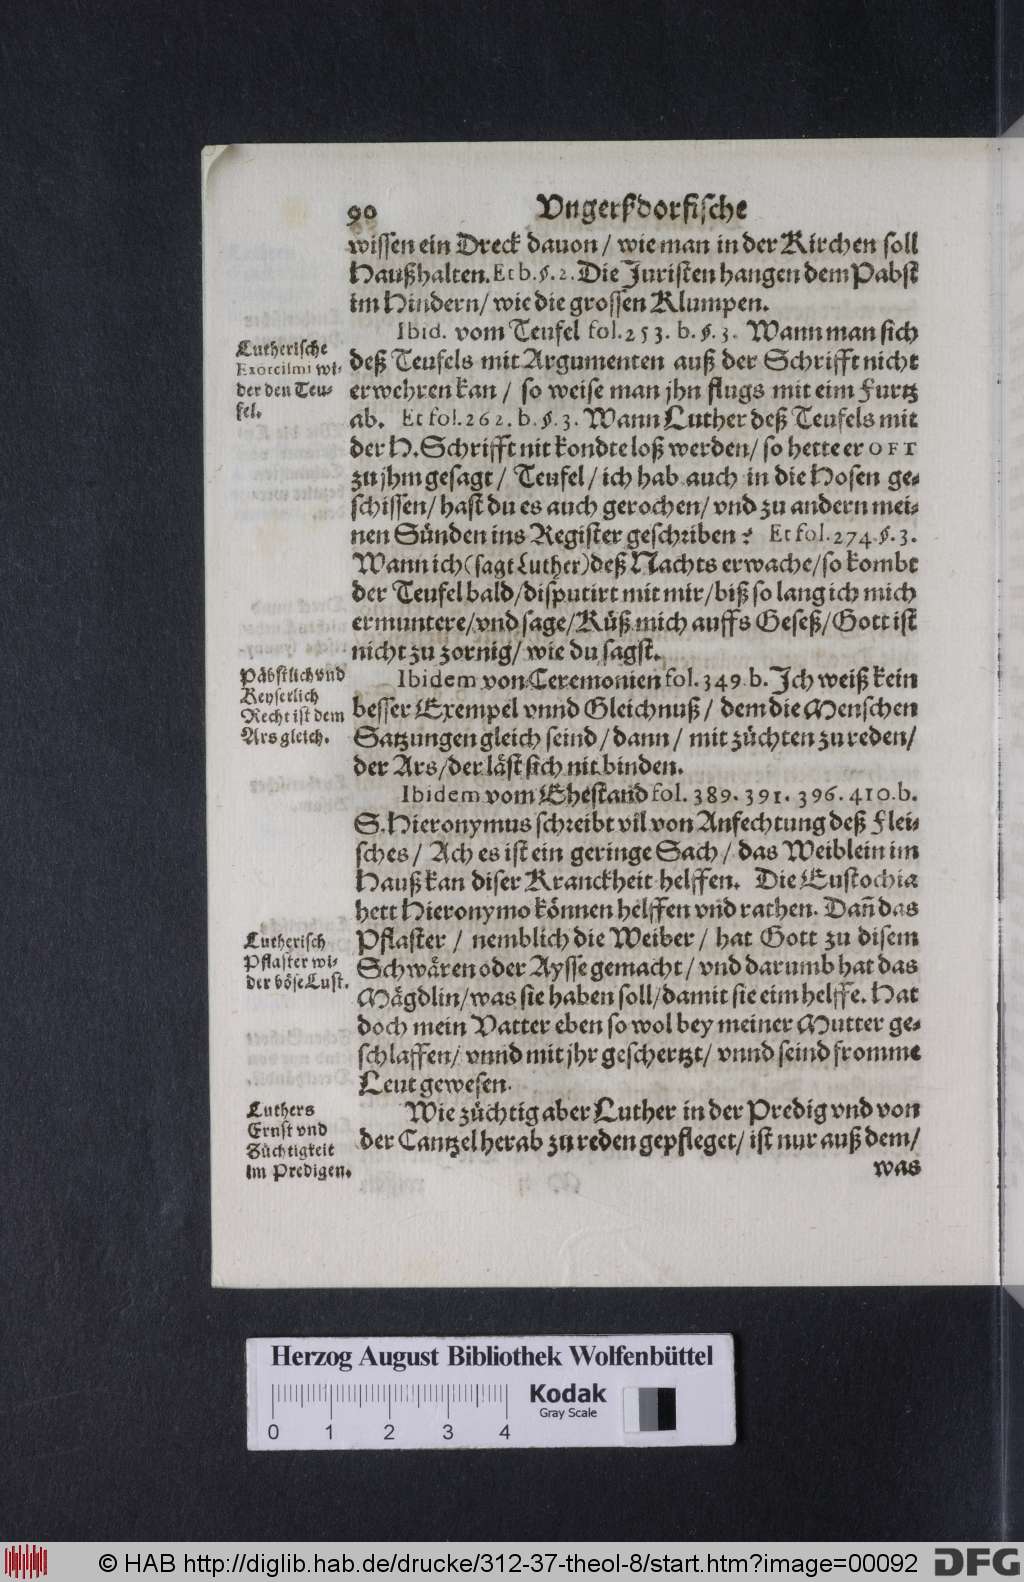 90 Vngerßdorfische
wissen ein Dreck dauon / wie man in der Kirchen soll
Haußhalten. Et b. §. 2. Die Juristen hangen dem Pabst
im Hindern / wie die grossen Klumpen.
Ibid. vom Teufel fol. 253. b. §. 3. Wann man sich
Lutherische
Exorcismi wi-
der den Teu-
fel.
deß Teufels mit Argumenten auß der Schrifft nicht
erwehren kan / so weise man jhn flugs mit eim Furtz
ab. Et fol. 262. b. §. 3. Wann Luther deß Teufels mit
der H. Schrifft nit kondte loß werden / so hette er OFT
zu jhm gesagt / Teufel / ich hab auch in die Hosen ge-
schissen / hast du es auch gerochen / vnd zu andern mei-
nen Sünden ins Register geschriben? Et fol. 274. §. 3.
Wann ich (sagt Luther) deß Nachts erwache / so kombt
der Teufel bald / disputirt mit mir / biß so lang ich mich
ermuntere / vnd sage / Küß mich auffs Geseß / Gott ist
nicht zu zornig / wie du sagst.
Päbstlich vnd
Keyserlich
Recht ist dem
Ars gleich.
Ibidem von Ceremonien fol. 349. b. Ich weiß kein
besser Exempel vnnd Gleichnuß / dem die Menschen
Satzungen gleich seind / dann / mit züchten zu reden /
der Ars / der läst sich nit binden.
Ibidem vom Ehestand fol. 389. 391. 396. 410. b.
S. Hieronymus schreibt vil von Anfechtung deß Flei-
sches / Ach es ist ein geringe Sach / das Weiblein im
Hauß kan diser Kranckheit helffen. Die Eustochia
hett Hieronymo können helffen vnd rathen. Dañ das
Lutherisch
Pflaster wi-
der böse Lust.
Pflaster / nemblich die Weiber / hat Gott zu disem
Schwären oder Aysse gemacht / vnd darumb hat das
Mägdlin / was sie haben soll / damit sie eim helffe. Hat
doch mein Vatter eben so wol bey meiner Mutter ge-
schlaffen / vnnd mit jhr geschertzt / vnnd seind fromme
Leut gewesen.
Luthers
Ernst vnd
Züchtigkeit
im Predigen.
Wie züchtig aber Luther in der Predig vnd von
der Cantzel herab zu reden gepfleget / ist nur auß dem /
was
Herzog August Bibliothek Wolfenbüttel
Kodak
Gray Scale
0 1 2 3 4
© HAB http://diglib.hab.de/drucke/312-37-theol-8/start.htm?image=00092
DFG